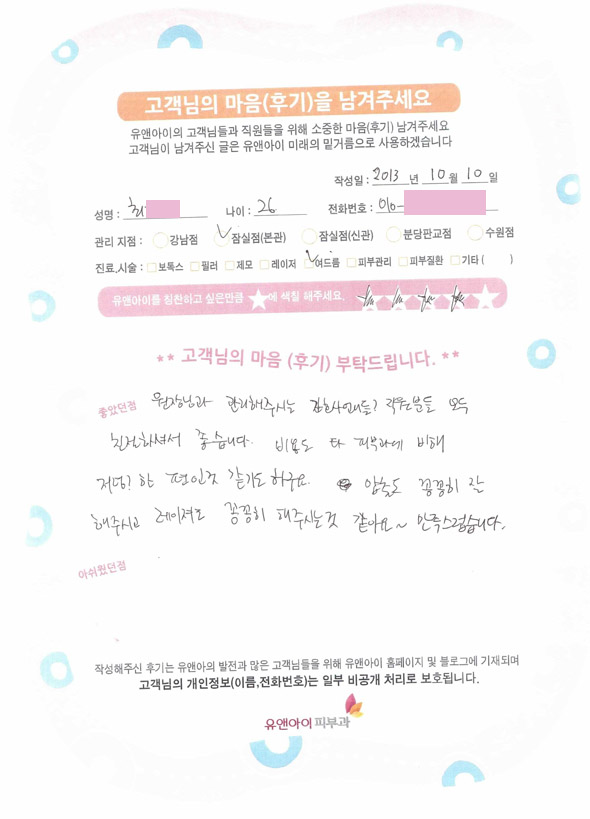 고객님의 마음(후기)을 남겨주세요
유앤아이의 고객님들과 직원들을 위해 소중한 마음(후기) 남겨주세요
고객님이 남겨주신 글은 유앤아이 미래의 밑거름으로 사용하겠습니다
작성일 : 2013 년 10 월 10 일
성명 : 최 나이 : 26 전화번호 : 010-
관리 지점 : 강남점 잠실점(본관) 잠실점(신관) 분당판교점 수원점
진료,시술 : 보톡스 필러 제모 레이저 여드름 피부관리 피부질환 기타 ( )
유앤아이를 칭찬하고 싶은만큼 에 색칠 해주세요.
** 고객님의 마음 (후기) 부탁드립니다. **
좋았던점 원장님과 관리해주시는 간호사언니들? 직원분들 모두
친절하셔서 좋습니다. 비용도 타 피부과에 비해
저렴? 한 편인것 같기도 하구요. 압출도 꼼꼼히 잘
해주시고 레이저도 꼼꼼히 해주시는것 같아요~ 만족스럽습니다.
아쉬웠던점
작성해주신 후기는 유앤아의 발전과 많은 고객님들을 위해 유앤아이 홈페이지 및 블로그에 기재되며
고객님의 개인정보(이름,전화번호)는 일부 비공개 처리로 보호됩니다.
유앤아이피부과